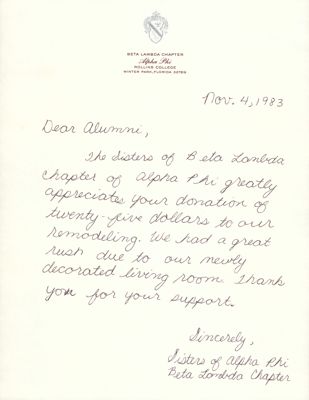 BETA LAMBDA CHAPTER
Alpha Phi
ROLLINS COLLEGE
WINTER PARK, FLORIDA 32789
Nov. 4, 1983
Dear Alumni,
The Sisters of Beta Lambda
chapter of Alpha Phi greatly
appreciates your donation of
twenty-five dollars to our
remodeling. We had a great
rush due to our newly
decorated living room. Thank
you for your support.
Sincerely,
Sisters of Alpha Phi
Beta Lambda Chapter